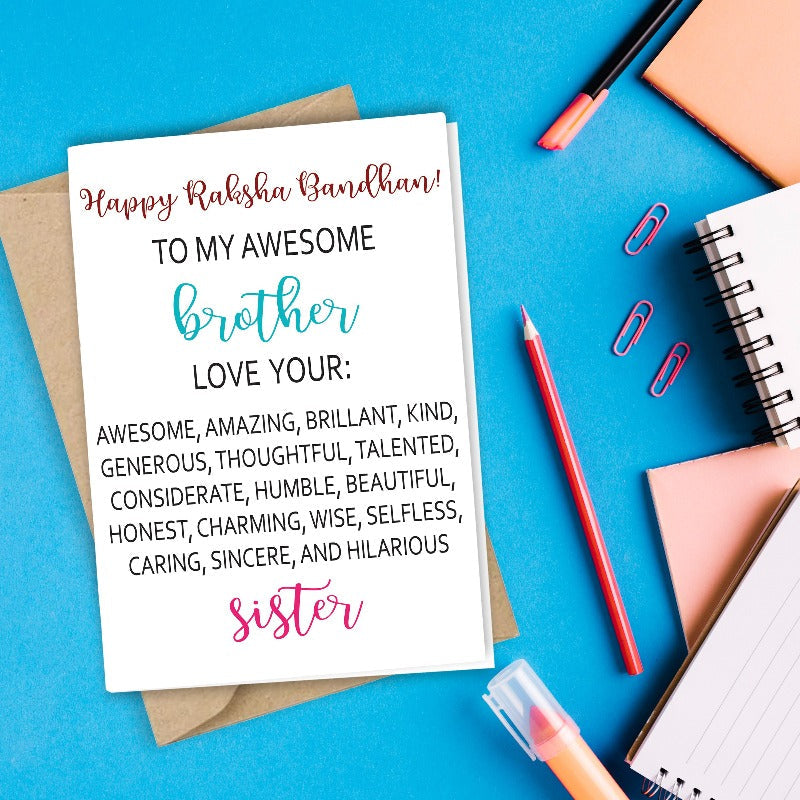 Happy Raksha Bandhan!
TO MY AWESOME
brother
LOVE YOUR:
AWESOME, AMAZING, BRILLANT, KIND,
GENEROUS, THOUGHTFUL, TALENTED,
CONSIDERATE, HUMBLE, BEAUTIFUL,
HONEST, CHARMING, WISE, SELFLESS,
CARING, SINCERE, AND HILARIOUS
sister